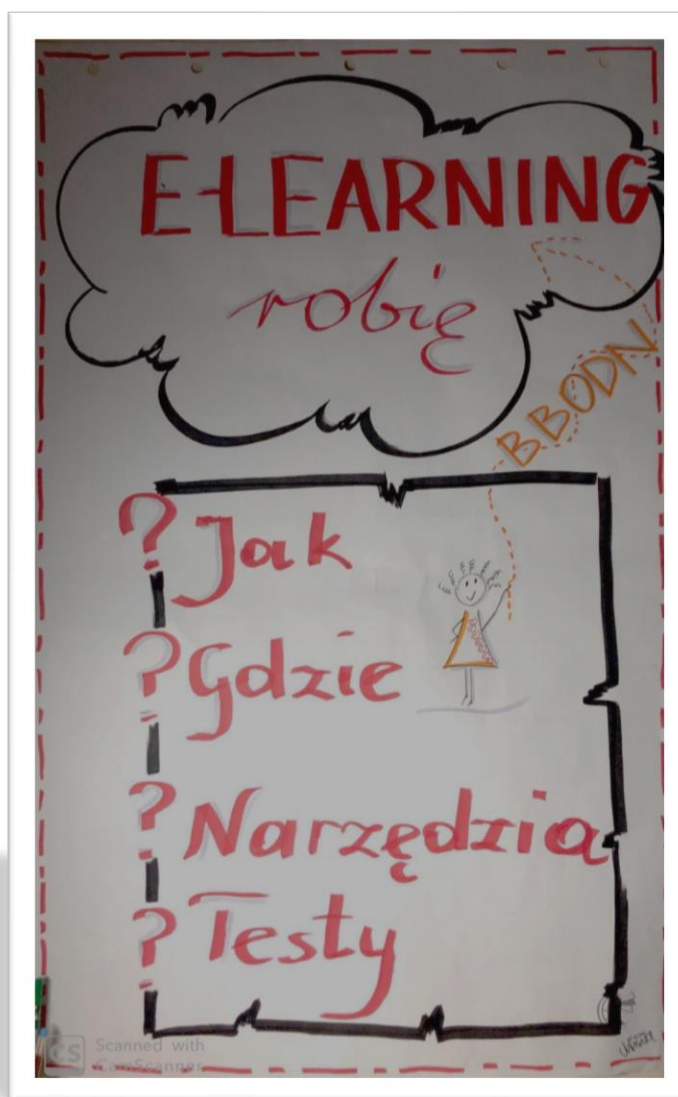 E-LEARNING
robię
BBODN
? Jak
? Gdzie
? Narzędzia
? Testy
CS Scanned with
CamScanner